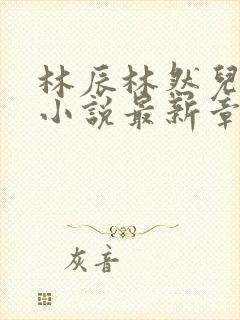 林辰林然兒
小說最新章
灰音